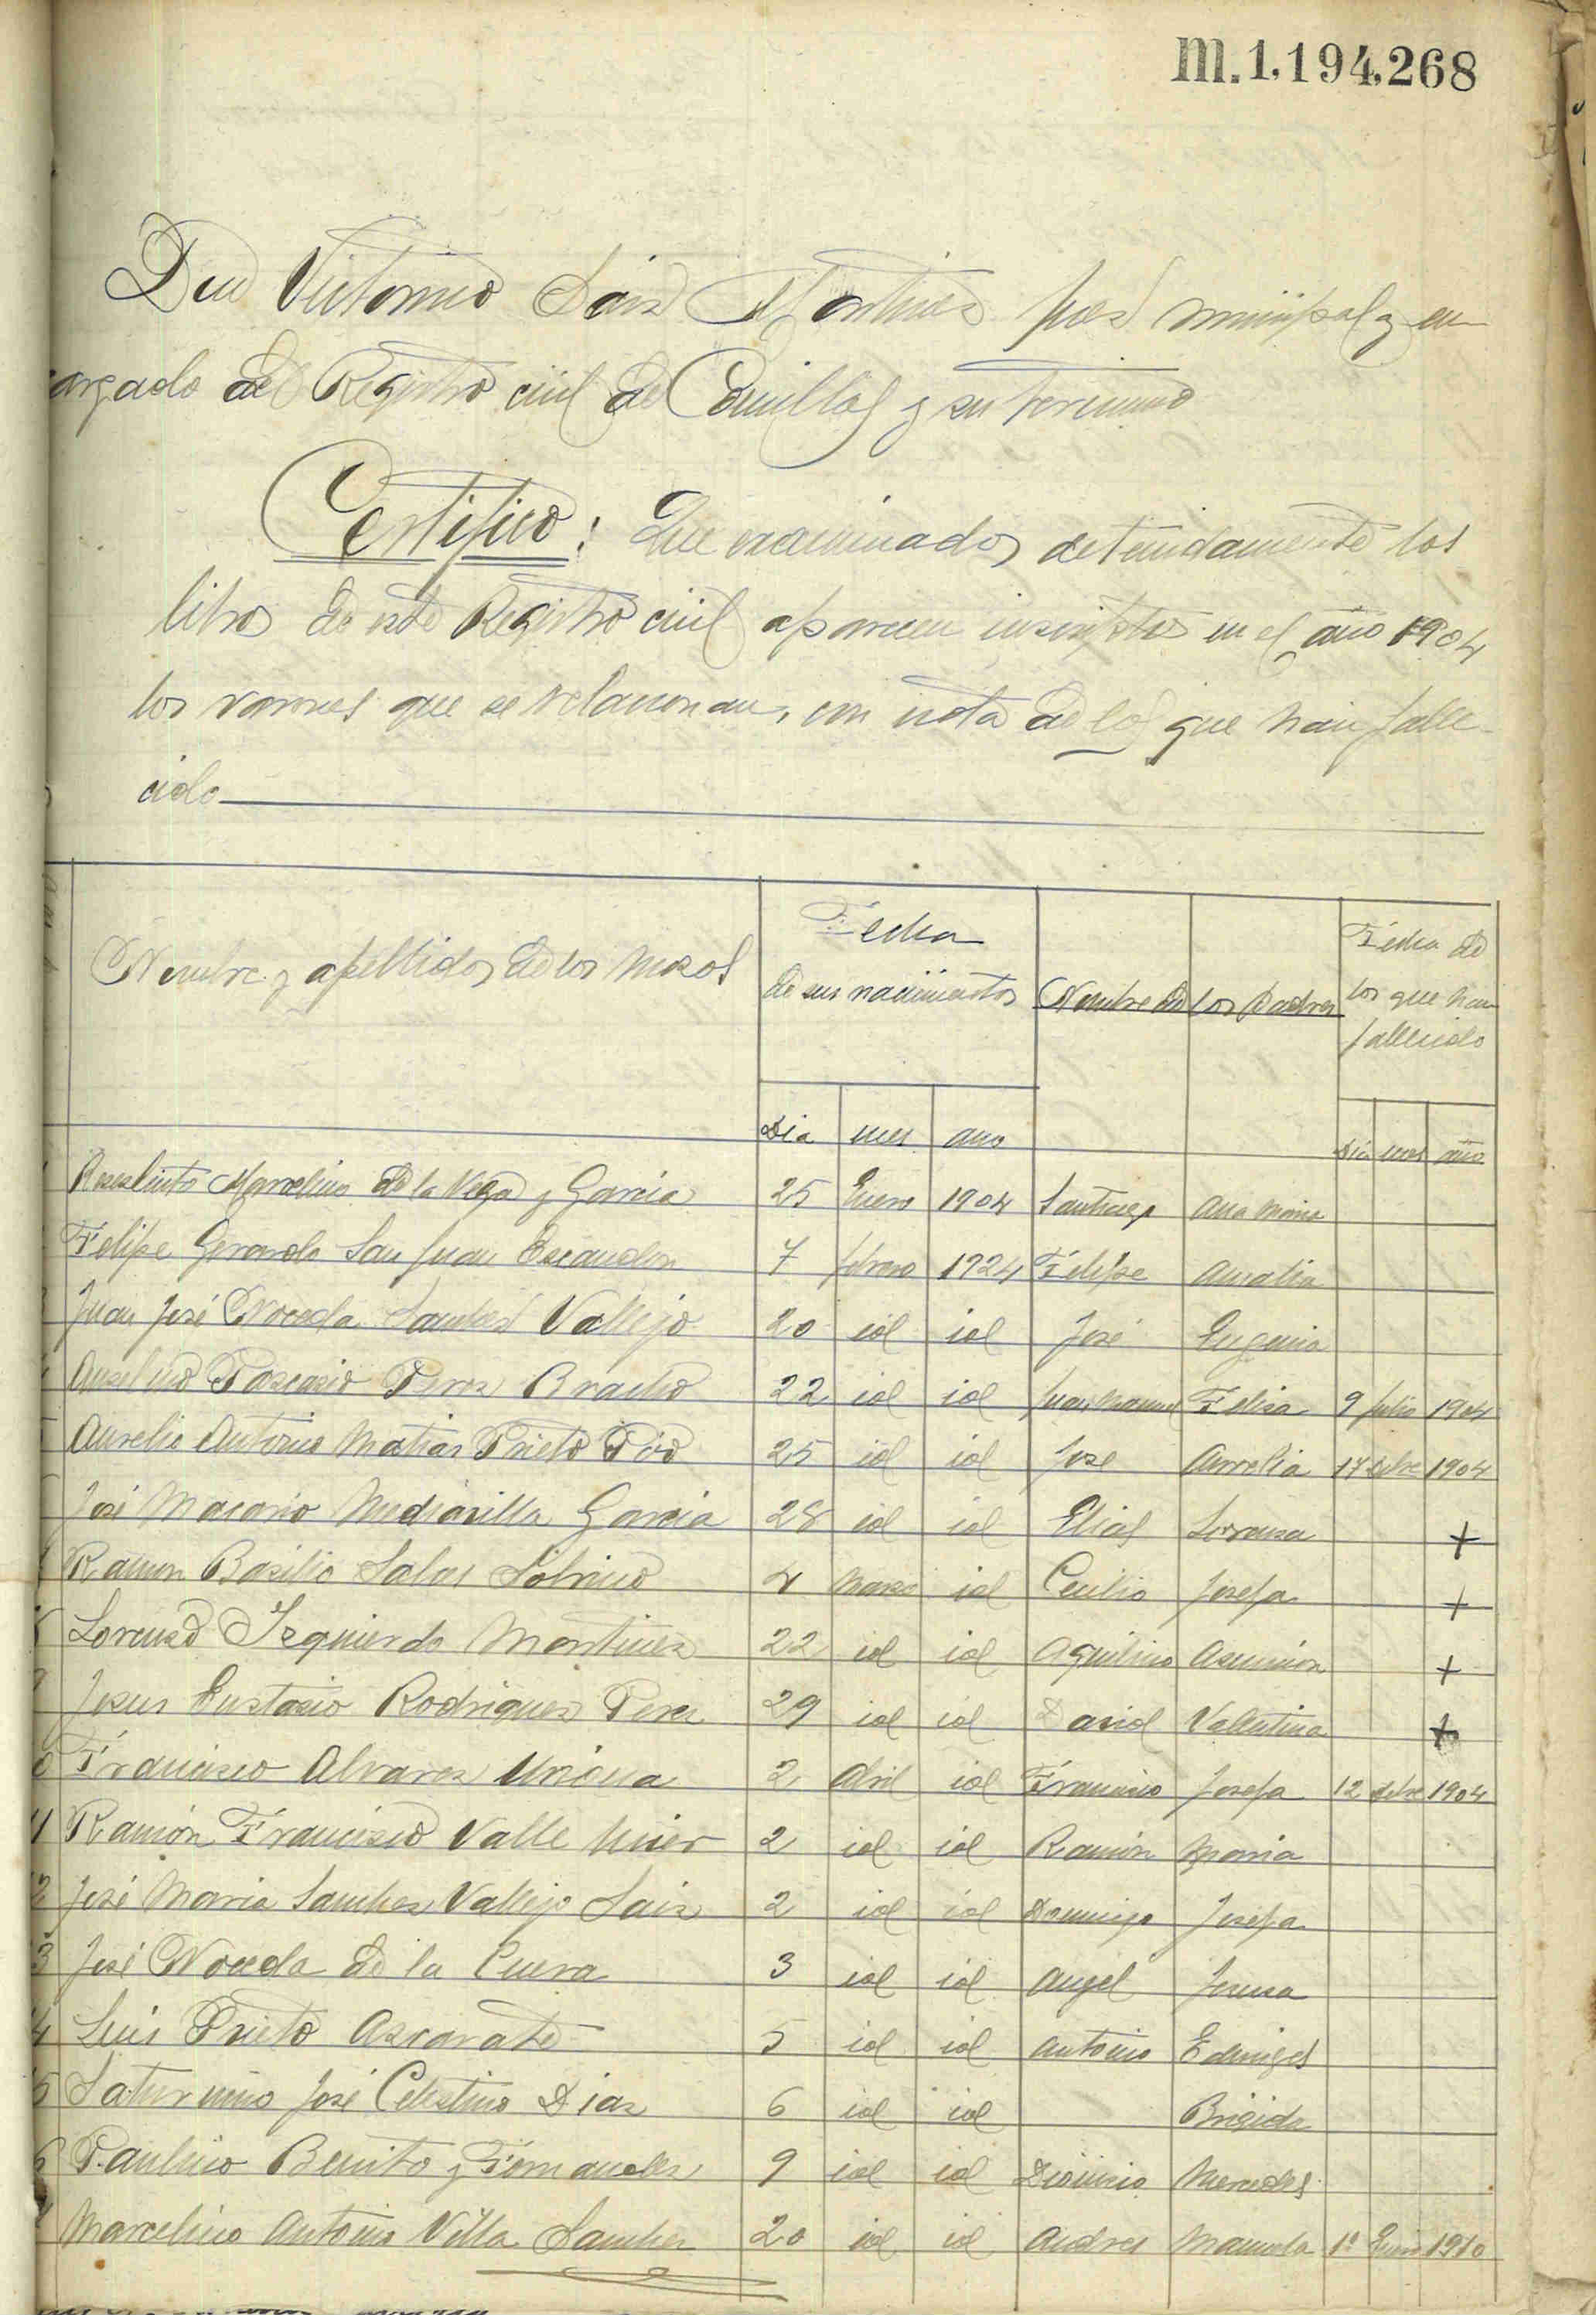 M.1,194,268
Don Victorino Saiz Martinez juez municipal y en
cargado del Registro civil de Comillas y su termino
Certifico: Que examinados detenidamente los
libros de este Registro civil aparecen inscriptos en el año 1904
los varones que se relacionan, con nota de los que han falle-
cido
Nombre y apellidos de los mozos Fecha de sus nacimientos Nombre de los Padres Fecha de los que han fallecido
Dia mes ano Dia mes año
Marcelino de la Vega y Garcia 25 Enero 1904 Santiago Ana Maria
Felipe Gerardo San Juan Escandon 7 febrero 1924 Felipe Amalia
Juan José Noceda Sanchez Vallejo 20 id id José Eugenia
Anselmo Pascasio Perez Bracho 22 id id Juan Manuel Felisa 9 Julio 1904
Aurelio Antonio Matias Prieto Pio 25 id id Jose Aurelia 17 Sbre 1904
José Macario Mediavilla Garcia 28 id id Elias Lorenza +
Ramon Basilio Salas Sobrino 4 Marzo id Cecilio Josefa +
8 Lorenzo Izquierdo Martinez 22 id id Aquilino Asuncion +
9 Jesus Eustasio Rodriguez Perez 29 id id David Valentina +
0 Francisco Alvarez 2 Abril id Francisco Josefa 12 1904
11 Ramón Francisco Valle Mier 2 id id Ramón Maria
2 José Maria Sanchez Vallejo Saiz 2 id id Domingo Josefa
3 José Noceda de la Cueva 3 id id Angel Teresa
4 Luis Prieto Azcarate 5 id id Antonio Eduviges
5 Saturnino José Celestino Diaz 6 id id Brigida
6 Paulino Benito y Fernandez 9 id id Dionisio Mercedes
Marcelino Antonio Villa Sanchez 20 id id Andres Manuela 1º 1910